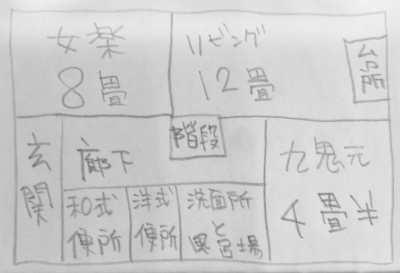 女楽
8畳
リビング
12畳
台所
玄関
廊下
階段
和式
便所
洋式
便所
洗面所
と
場
九鬼元
4畳半